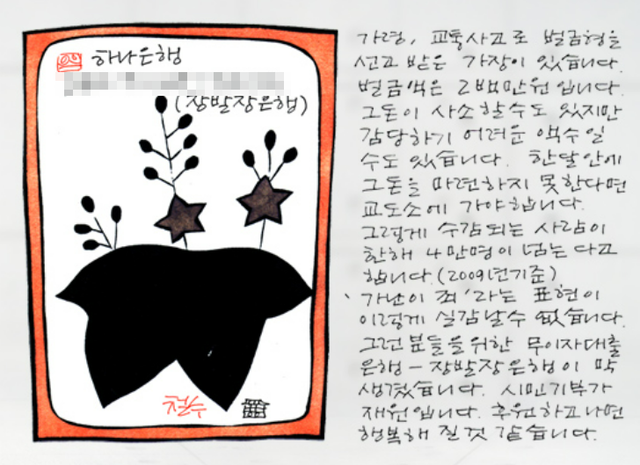 하나은행
(장발장은행)
가령, 교통사고로 벌금형을
선고 받은 가장이 있습니다.
벌금액은 2백만원입니다.
그돈이 사소할수도 있지만
감당하기 어려운 액수일
수도 있습니다. 한달안에
그돈을 마련하지 못한다면
교도소에 가야합니다.
그렇게 수감되는 사람이
한해 4만명이 넘는다고
합니다. (2009년기준)
'가난이 죄'라는 표현이
이렇게 실감날수 없습니다.
그런분들을위한 무이자대출
은행-장발장은행이 막
생겼습니다. 시민기부가
재원입니다. 후원하고나면
행복해 질것 같습니다.